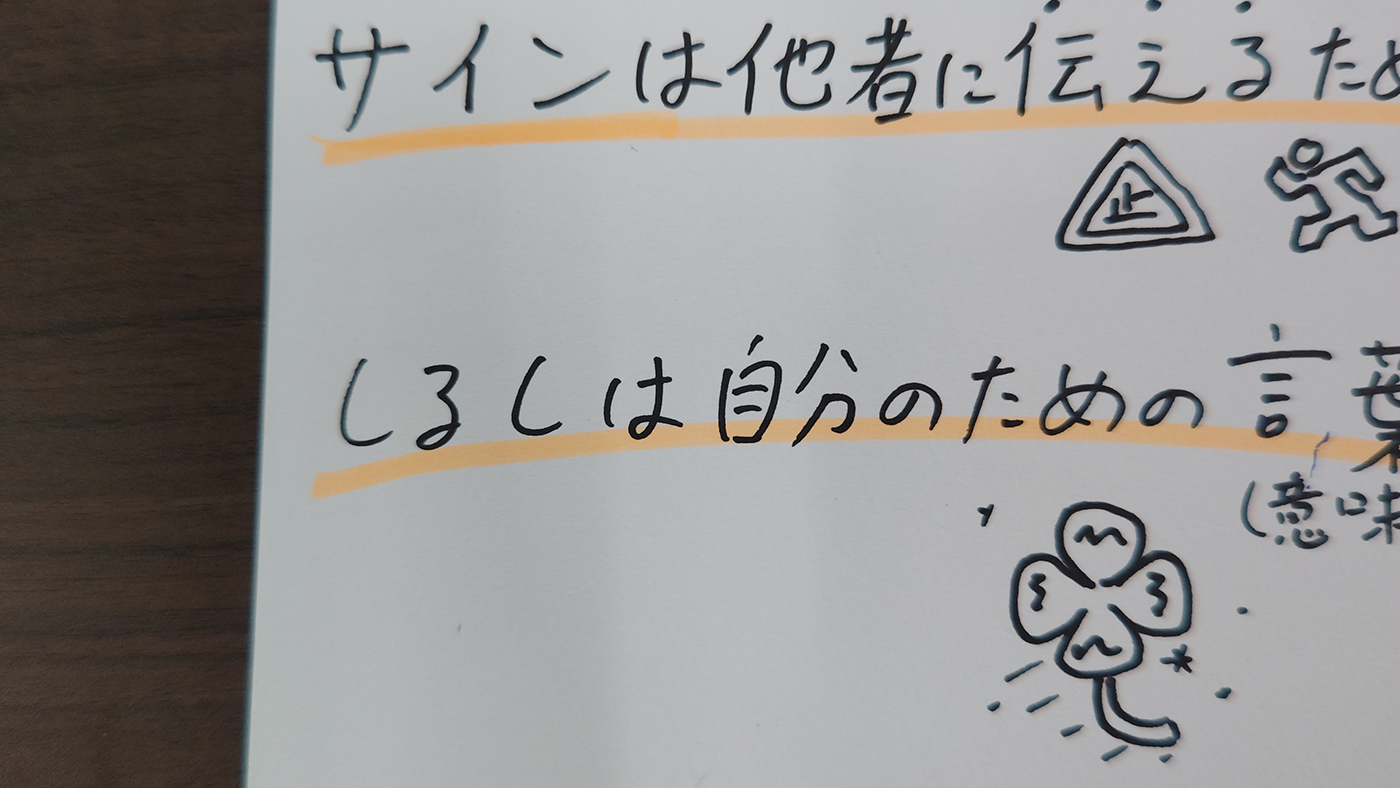 サインは他者に伝えるため
止
しるしは自分のための言葉
(意味